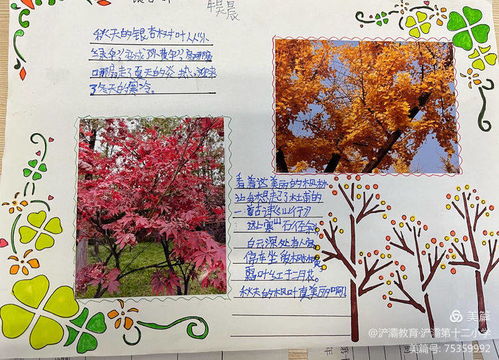 秋天的银杏树叶从
绿色变成了金黄色
走了夏天的炎热,迎来
了秋天的凉
看着这美丽的枫林
让我想起了杜牧的
一首诗《山行》
远上寒山石径斜
白云深处有人家
停车坐爱枫林晚
霜叶红于二月花
秋天的枫叶真美丽啊!
美篇
@浐灞教育浐灞第十二小学
美篇号: 75359992